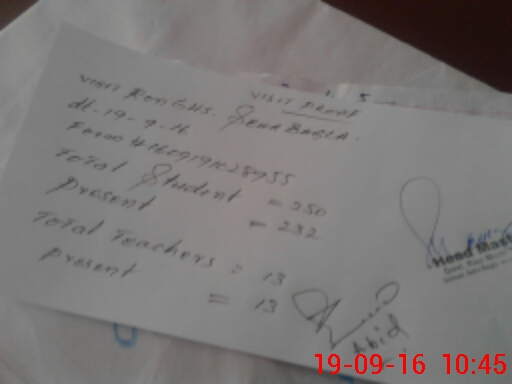 VISIT PROOF
VISIT REPORT GHS.
dt. 19-9-16
Form # 1609191028955
Total Student = 250
Present = 232
Total Teachers = 13
Present = 13
Abid
Head Mast
19-09-16 10:45